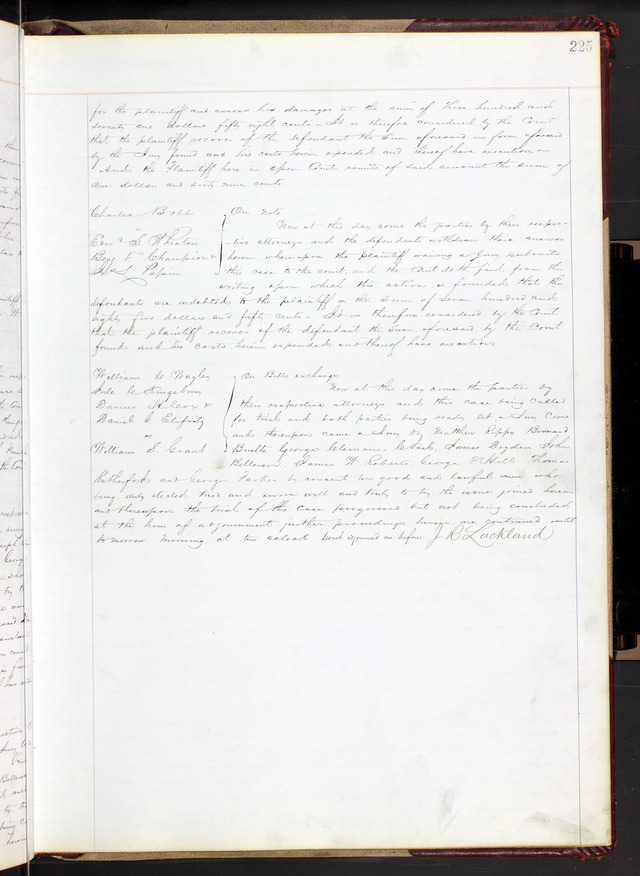 225
for the plaintiff and assess his damages at the sum of three hundred and
seventy one dollars fifty eight cents - It is therefore considered by the Court
that the plaintiff recover of the defendant the Sum aforesaid in form aforesaid
by the Jury found and his costs herein expended and thereof have execution
And the Plaintiff here in open Court remits of said amount the sum of
One dollar and sixty nine cents
Charles Bobb
Edwd S Wheaton
Benj F Champion &
L Papin
On Note
Now at this day come the parties by their respec-
tive attorneys and the defendants withdraw their answer
herein whereupon the plaintiff waiving a Jury submits
this case to the court, and the Court doth find from the
writing upon which this action is founded that the
defendants are indebted to the plaintiff in the Sum of Seven hundred and
eighty five dollars and fifty cents - It is therefore considered by the Court
that the plaintiff recover of the defendant the Sum aforesaid by the Court
found and his costs herein expended and thereof have execution
William C Wagley
Jule C Kingsbury
&
Daniel S
vs
William S Grant
On Bills exchange
Now at this day come the parties by
their respective attorneys and this case being called
for trial and both parties being ready let a Jury come
and thereupon came a Jury by Matthew Rippy Bernard
George Clemens, James Bogden John
James W Roberts George Hill Thomas
Rutherford and George Parker by consent ten good and lawful men who
being duly elected tried and sworn well and truly to try the issue joined herein
and thereupon the trial of this Case progressed but not being concluded
at the hour of adjournment further proceedings herein are continued until
tomorrow morning at ten oclock Court adjourned as before J R Lackland